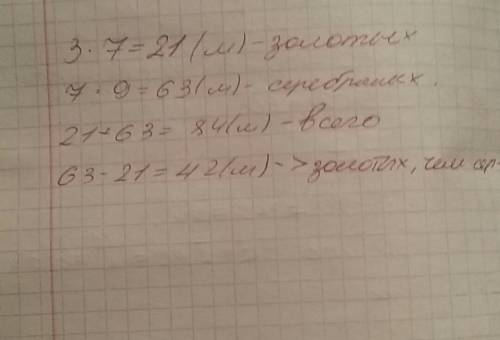 3 · 7 = 21 (м) - золотых
7 · 9 = 63 (м) - серебряных.
21 + 63 = 84 (м) - всего
63 - 21 = 42 (м) - > золотых, чем сер-